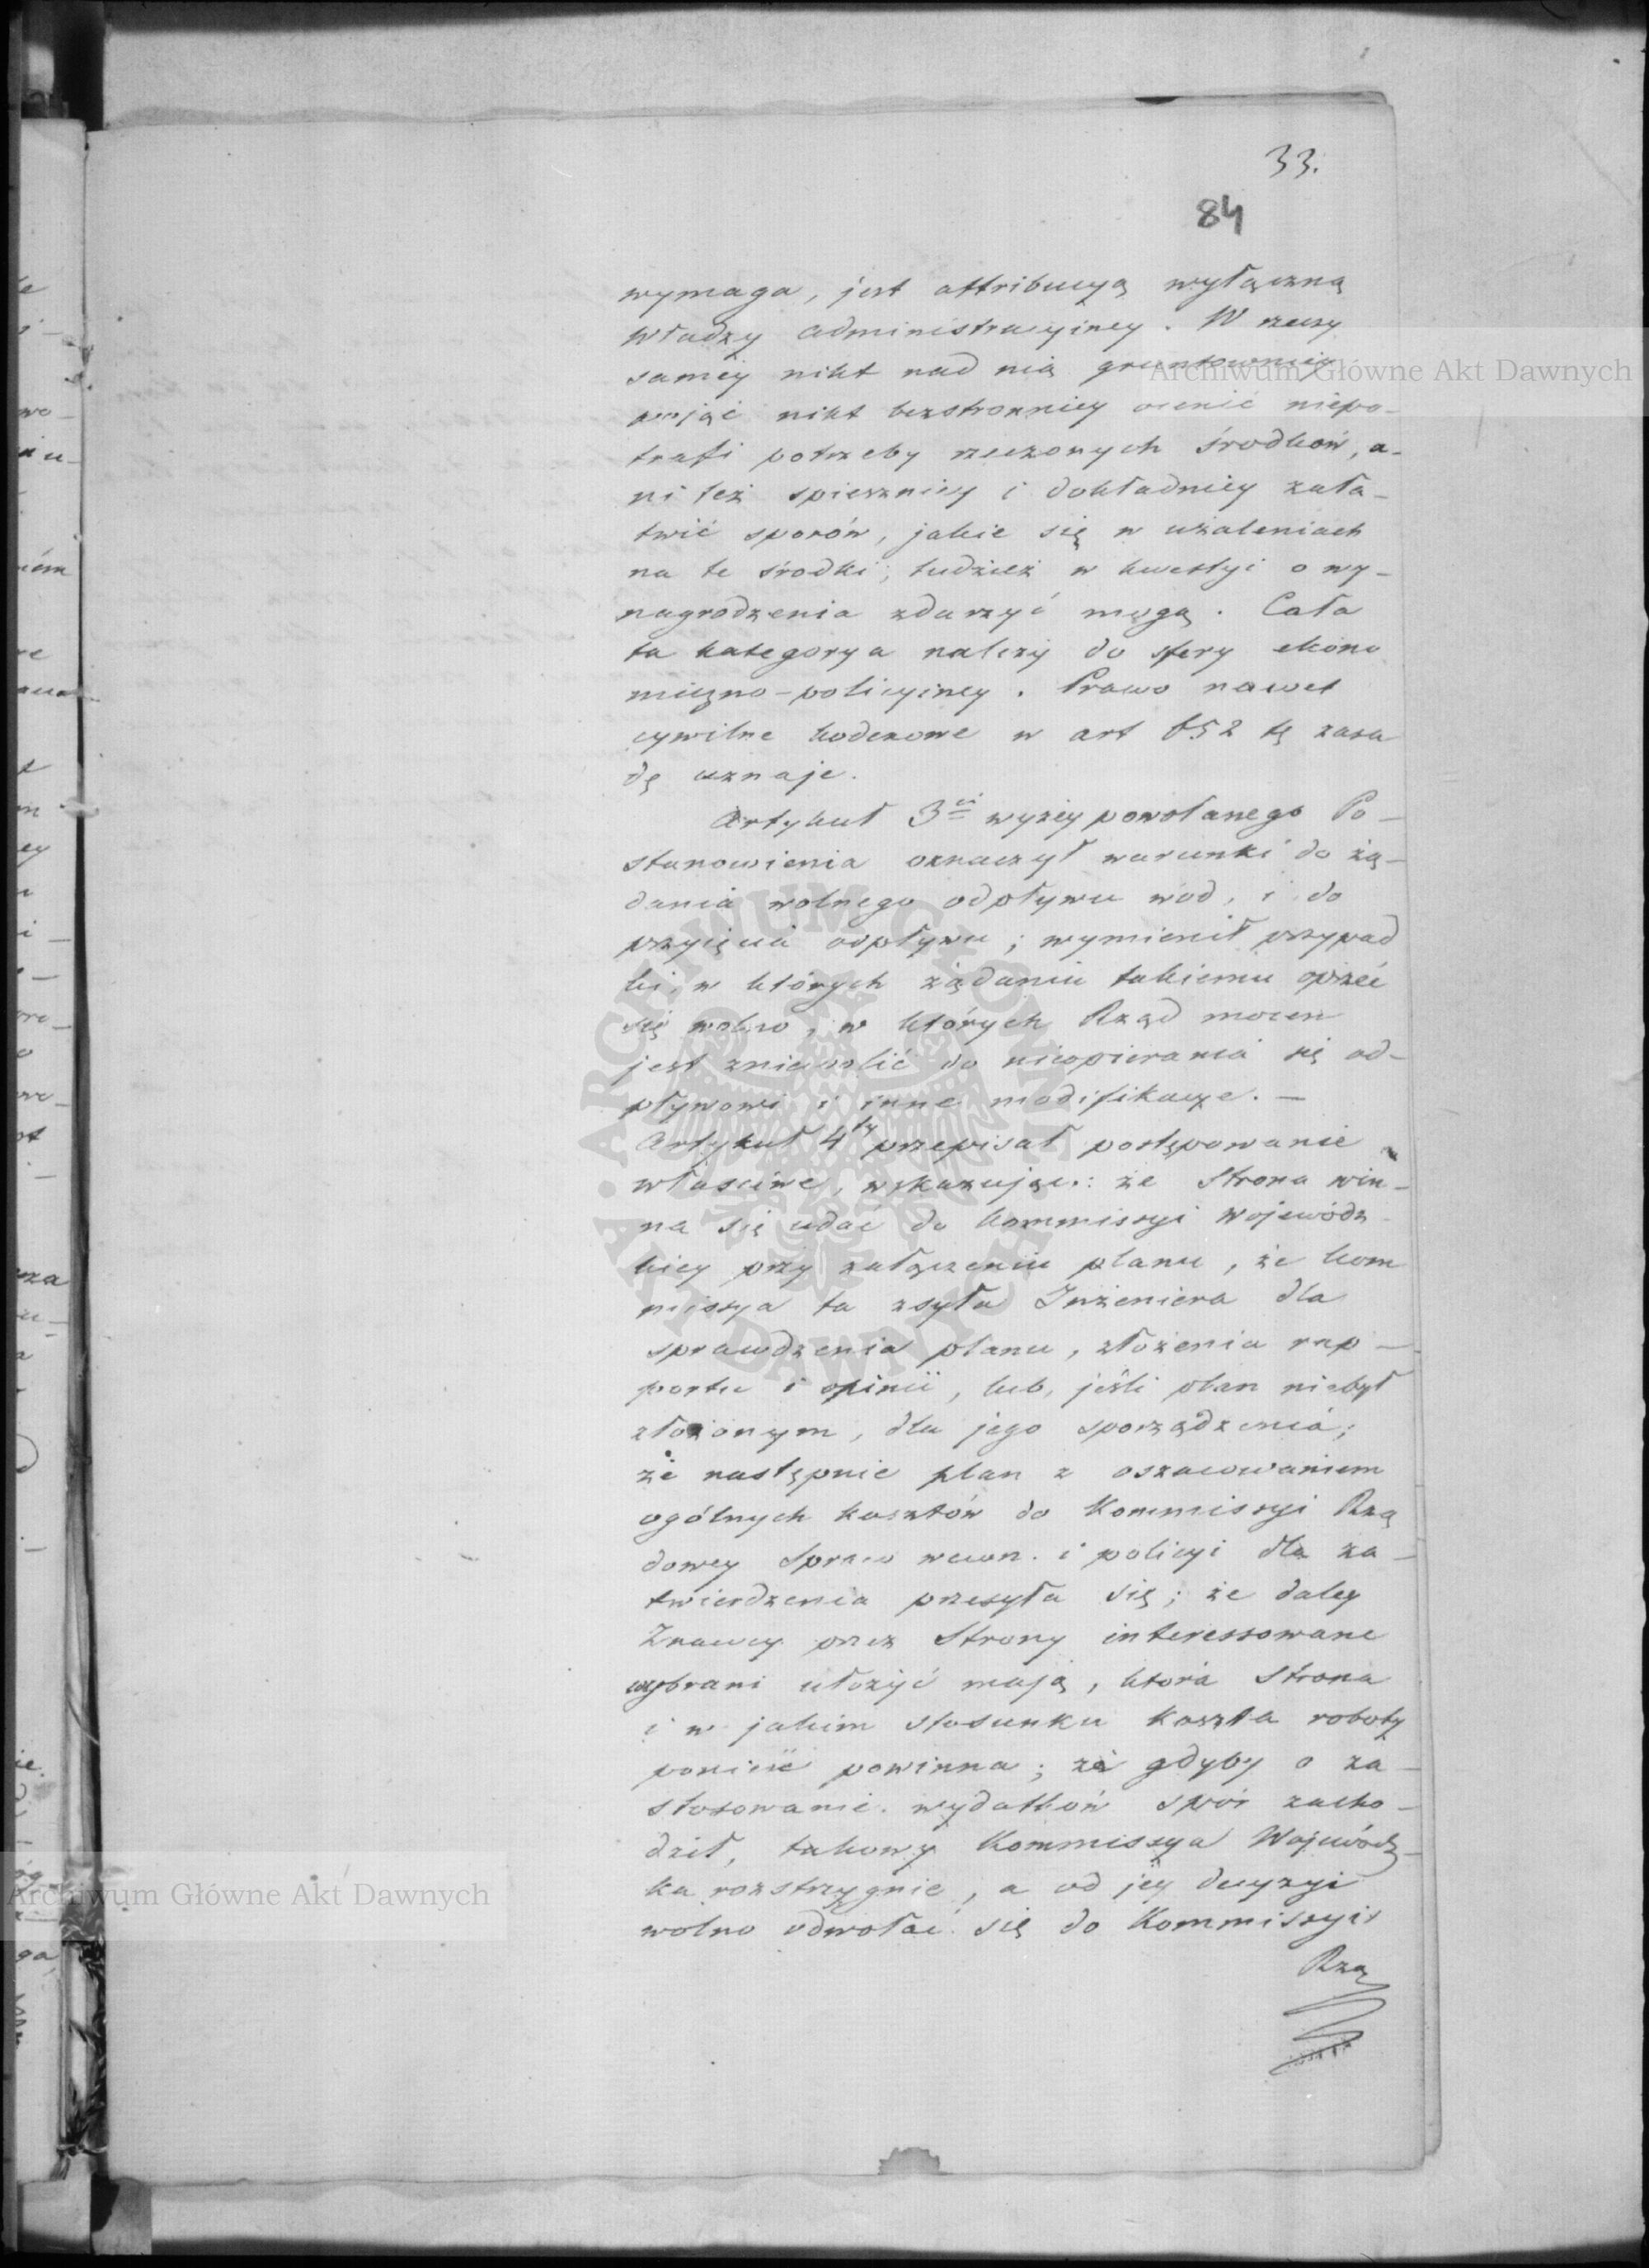 33.
84
wymaga, jest attribucyą wyłączną
Władzy administracyiney. W rzeczy
saméy nikt nad nią gruntowniéy
pojąć nikt bezstronniey ocenić niepo-
trafi potrzeby rzeczonych środków, a-
ni też spieszniey i dokładniéy zała-
twić sporów, jakie się w użaleniach
na te środki; tudzież w kwestyi o wy-
nagrodzenia zdarzyć mogą. Cała
ta kategorya należy do sfery ekono
miczno-policyiney. Prawo nawet
cywilne kodexowe w art 652 tę zasa
dę uznaje.
Artykuł 3ci wyżey powołanego Po-
stanowienia oznaczył warunki do żą-
dania wolnego odpływu wod, i do
przyięcia odpływu; wymienił przypad
ki, w których żądaniu takiemu oprzeć
się wolno, w których Rząd mocen
jest zniewolić do nieopierania się od-
pływowi i inne modifikacye. —
Artykuł 4ty przepisał postępowanie
właściwe, wskazując: że Strona win-
na się udać do Kommissyi Wojewódz-
kiey przy załączeniu planu, że Kom
missya ta zsyła Inżeniera dla
sprawdzenia planu, złożenia rap-
portu i opinii, lub, jeśli plan niebył
złożonym, dla jego sporządzenia;
że następnie plan z oszacowaniem
ogólnych kosztów do Kommissyi Rzą
dowey Spraw wewn. i policyi dla za-
twierdzenia przesyła się; że daley
Znawcy przez Strony interessowane
wybrani ułożyć mają, która Strona
i w jakim stosunku koszta roboty
ponieść powinna; że gdyby o za-
stosowanie wydatków spór zacho-
dził, takowy Kommissya Wojewódz-
ka rozstrzygnie, a od jéy decyzyi
wolno odwołać się do Kommissyi
Rzą
Archiwum Główne Akt Dawnych
ARCHIWUM GŁÓWNE AKT DAWNYCH
Archiwum Główne Akt Dawnych